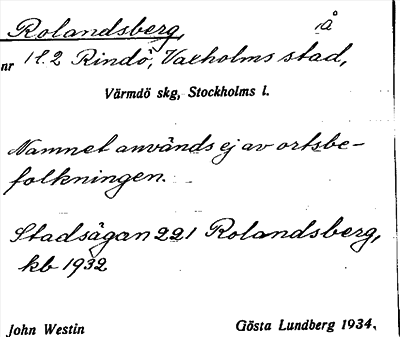 Rolandsberg, Å
nr 1 l. 2 Rindö, Vaxholms stad,
Värmdö skg, Stockholms l.
Namnet används ej av ortsbe-
folkningen.
Stadsägan 221 Rolandsberg,
kb 1932
John Westin Gösta Lundberg 1934.